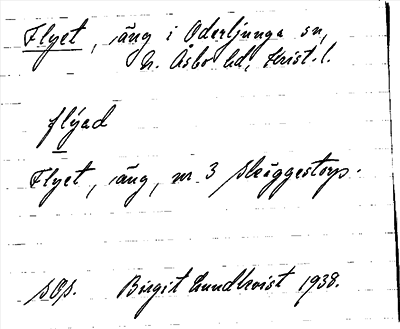 Flyet, äng i Oderljunga sn,
N. Åsbo hd, Krist. l.
flýad
Flyet, äng, nr 3 Skäggestorp.
sOp. Birgit Lundkvist 1938.